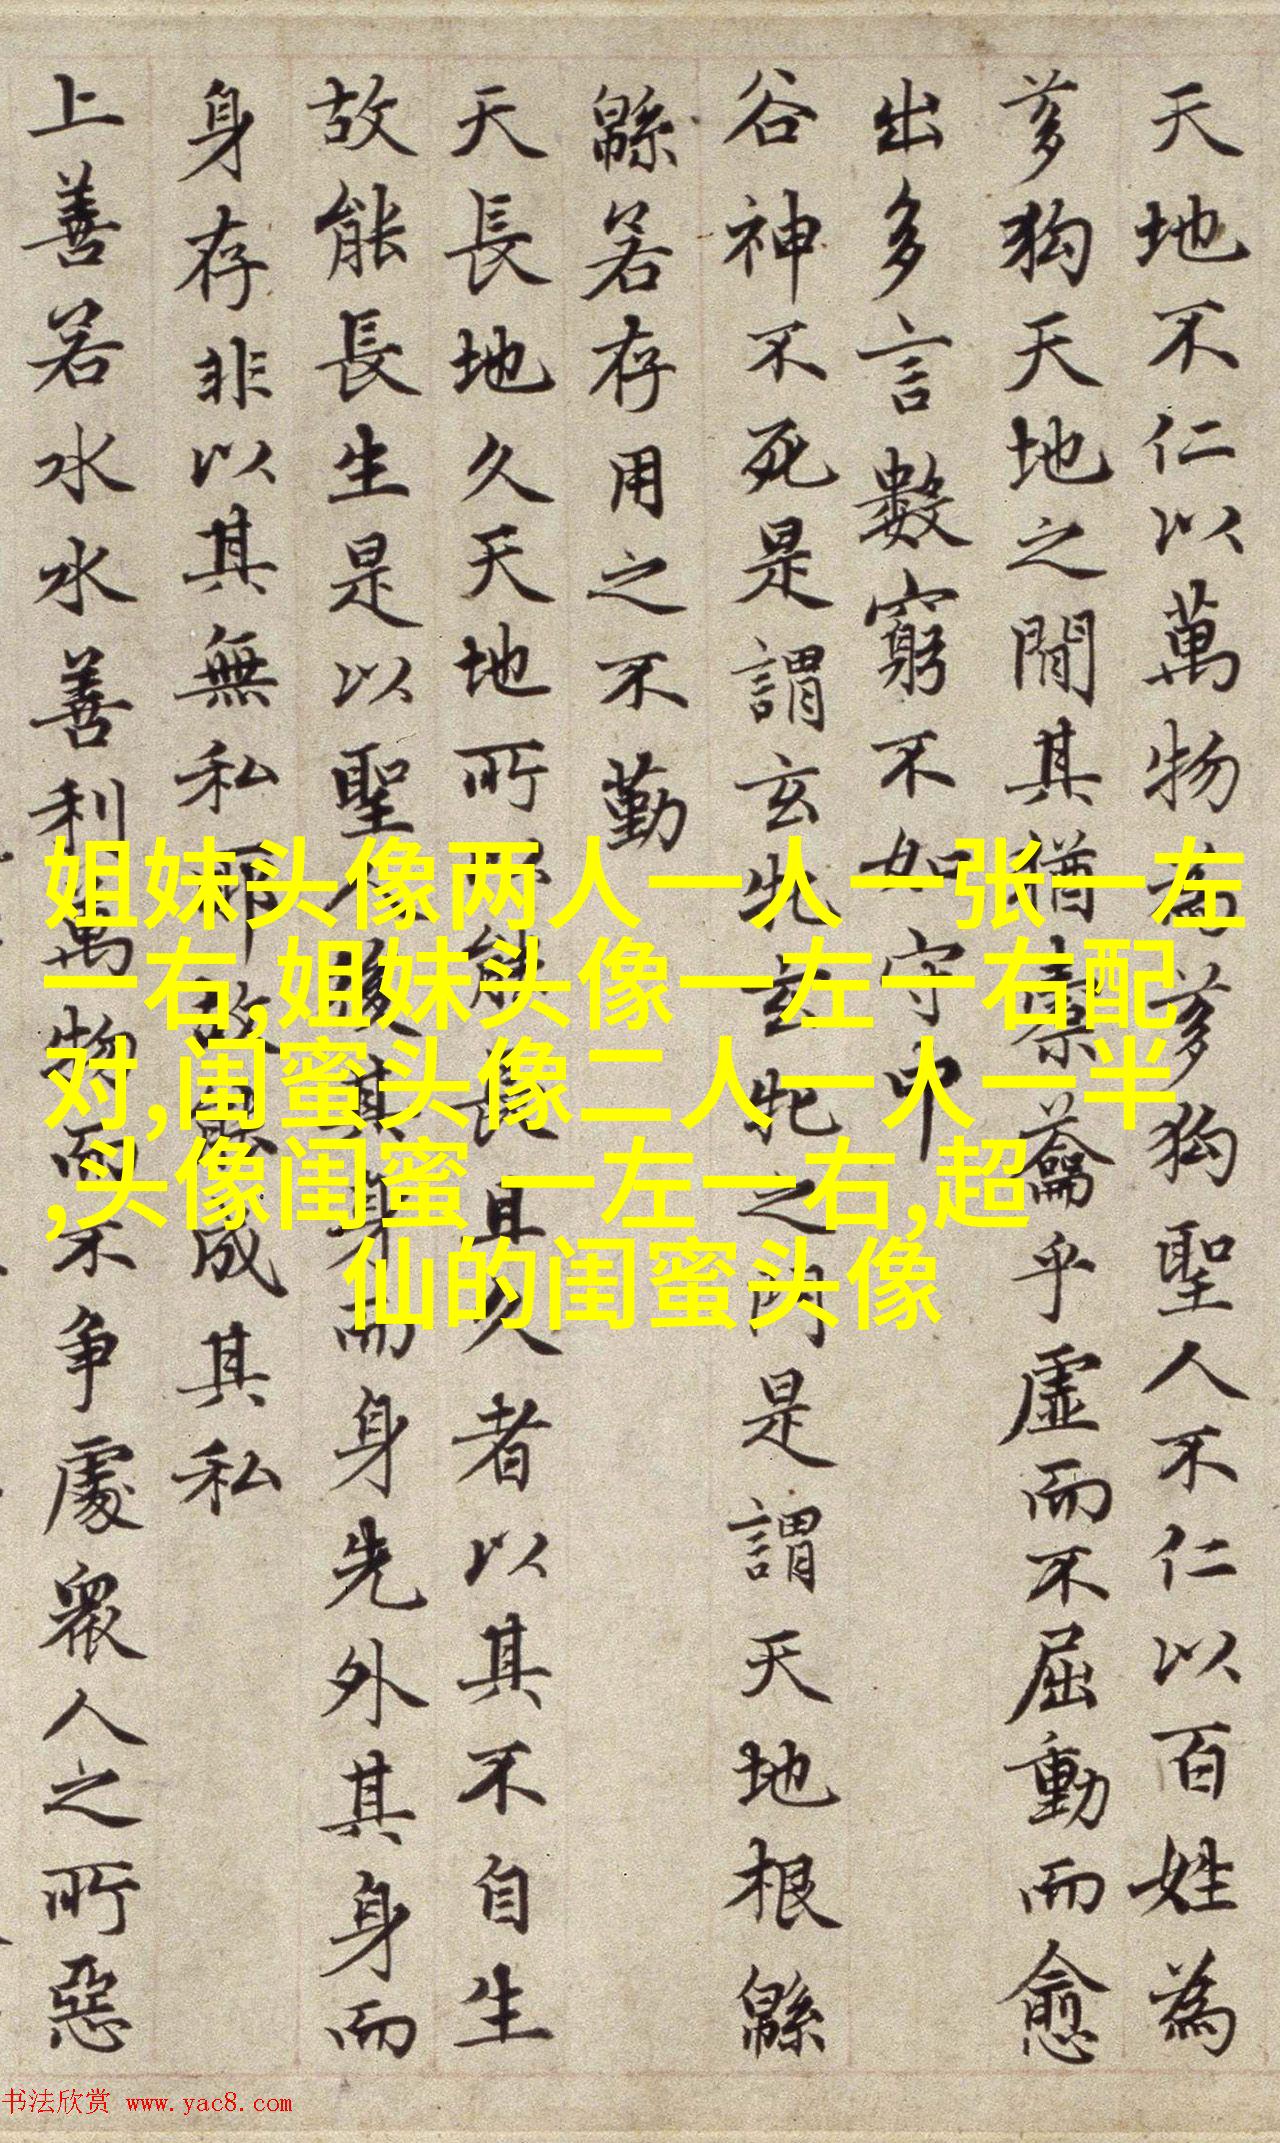 天地不仁以萬物為芻狗聖人不仁以百姓為
芻狗天地之間其猶橐籥乎虛而不屈動而愈
出多言數窮不如守中
谷神不死是謂玄牝玄牝之門是謂天地根緜
緜若存用之不勤
天長地久天地所以能長且久者以其不自生
故能長生是以聖人後其身而身先外其身而
身存非以其無私邪故能成其私
上善若水水善利萬物而不争處衆人之所惡
姐妹头像两人一人一张一左
一右,姐妹头像一左一右配
对,闺蜜头像二人一人一半
,头像闺蜜 一左一右,超
仙的闺蜜头像
书法欣赏 www.yac8.com